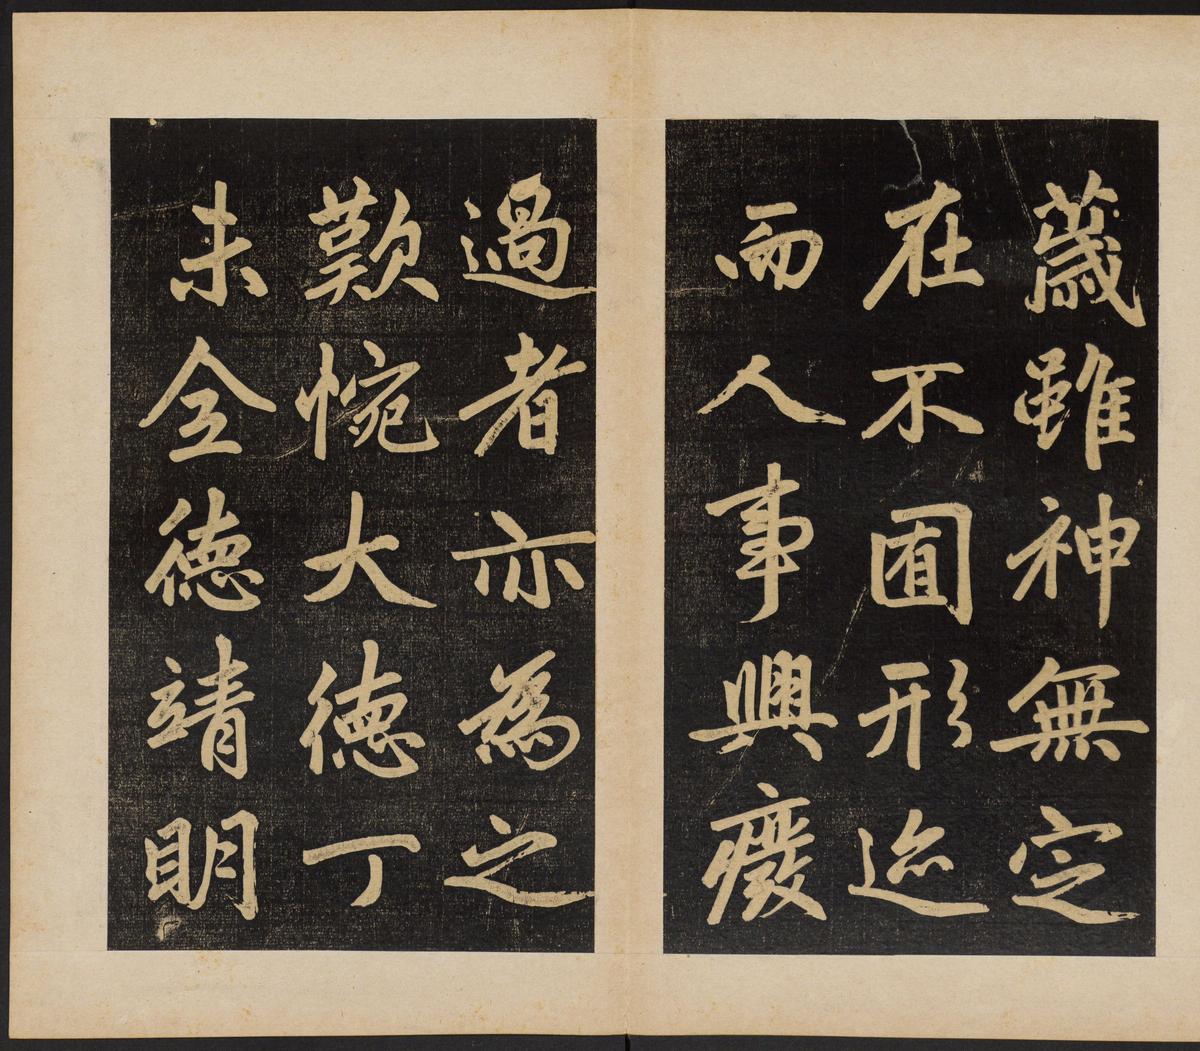 薉雖神無定
在不囿形迹
而人事興廢
過者亦為之
歎惋大德丁
未全德靖明